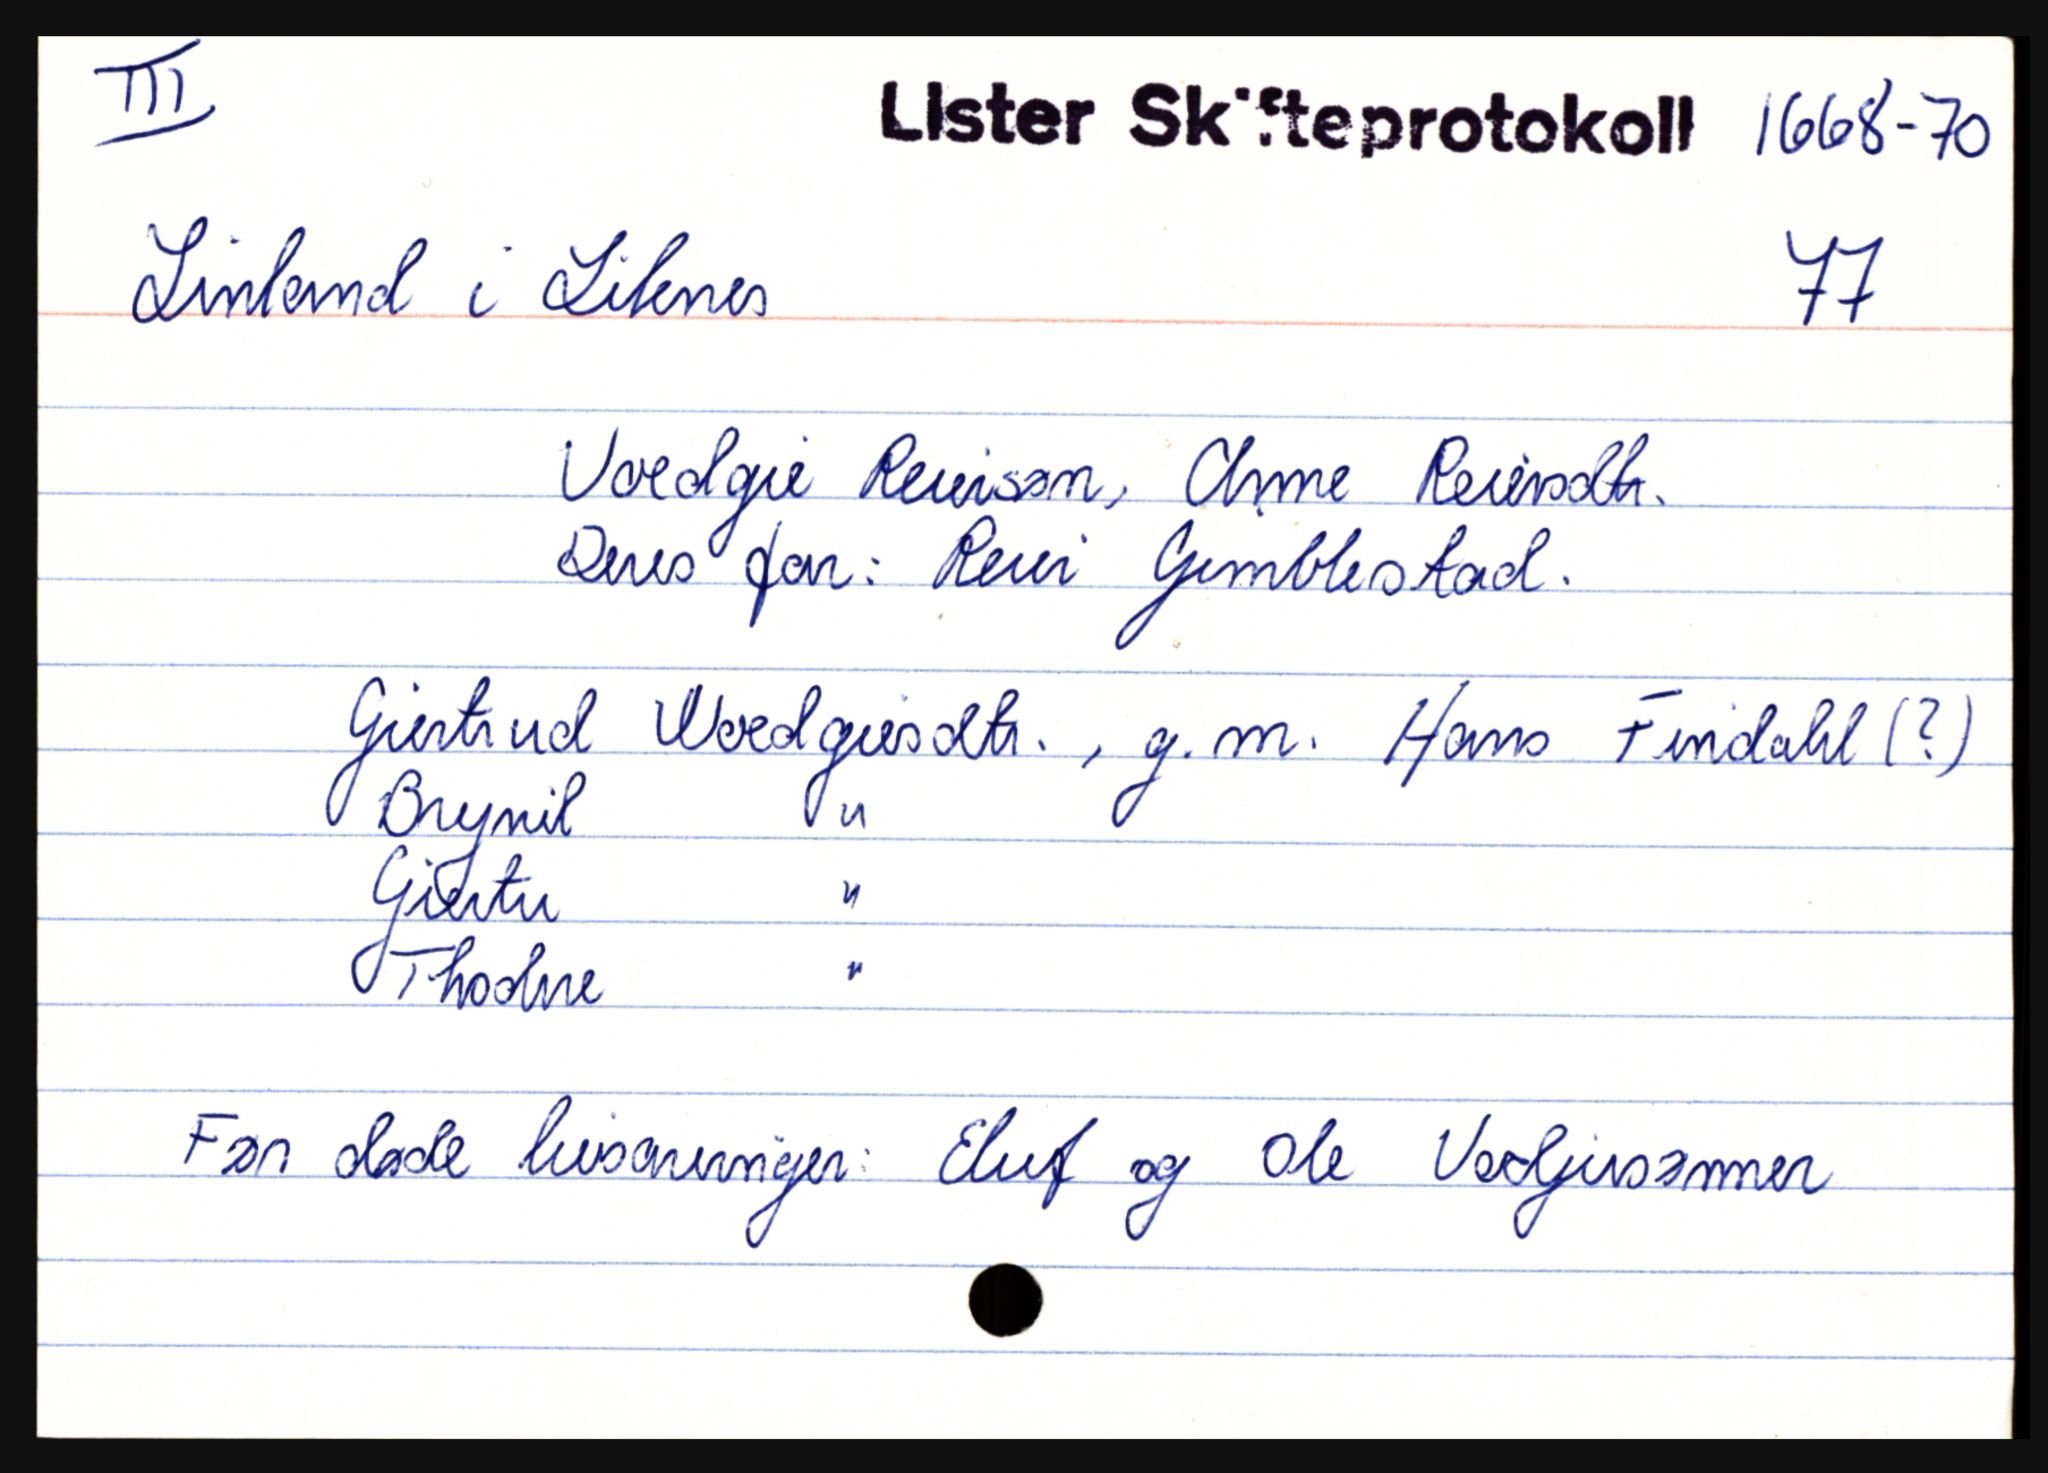 III
Lister Skifteprotokoll 1668-70
Linland i Liknes 77
Voedgie Reiersøn, Anne Reiersdtr.
Deres far: Reier Gimblestad.
Giertrud Woedgiesdtr., g.m. Hans Findahl (?)
Brynil "
Giertru "
Thodne "
Før døde livsarvinger: Eluf og Ole Vodgiesønner